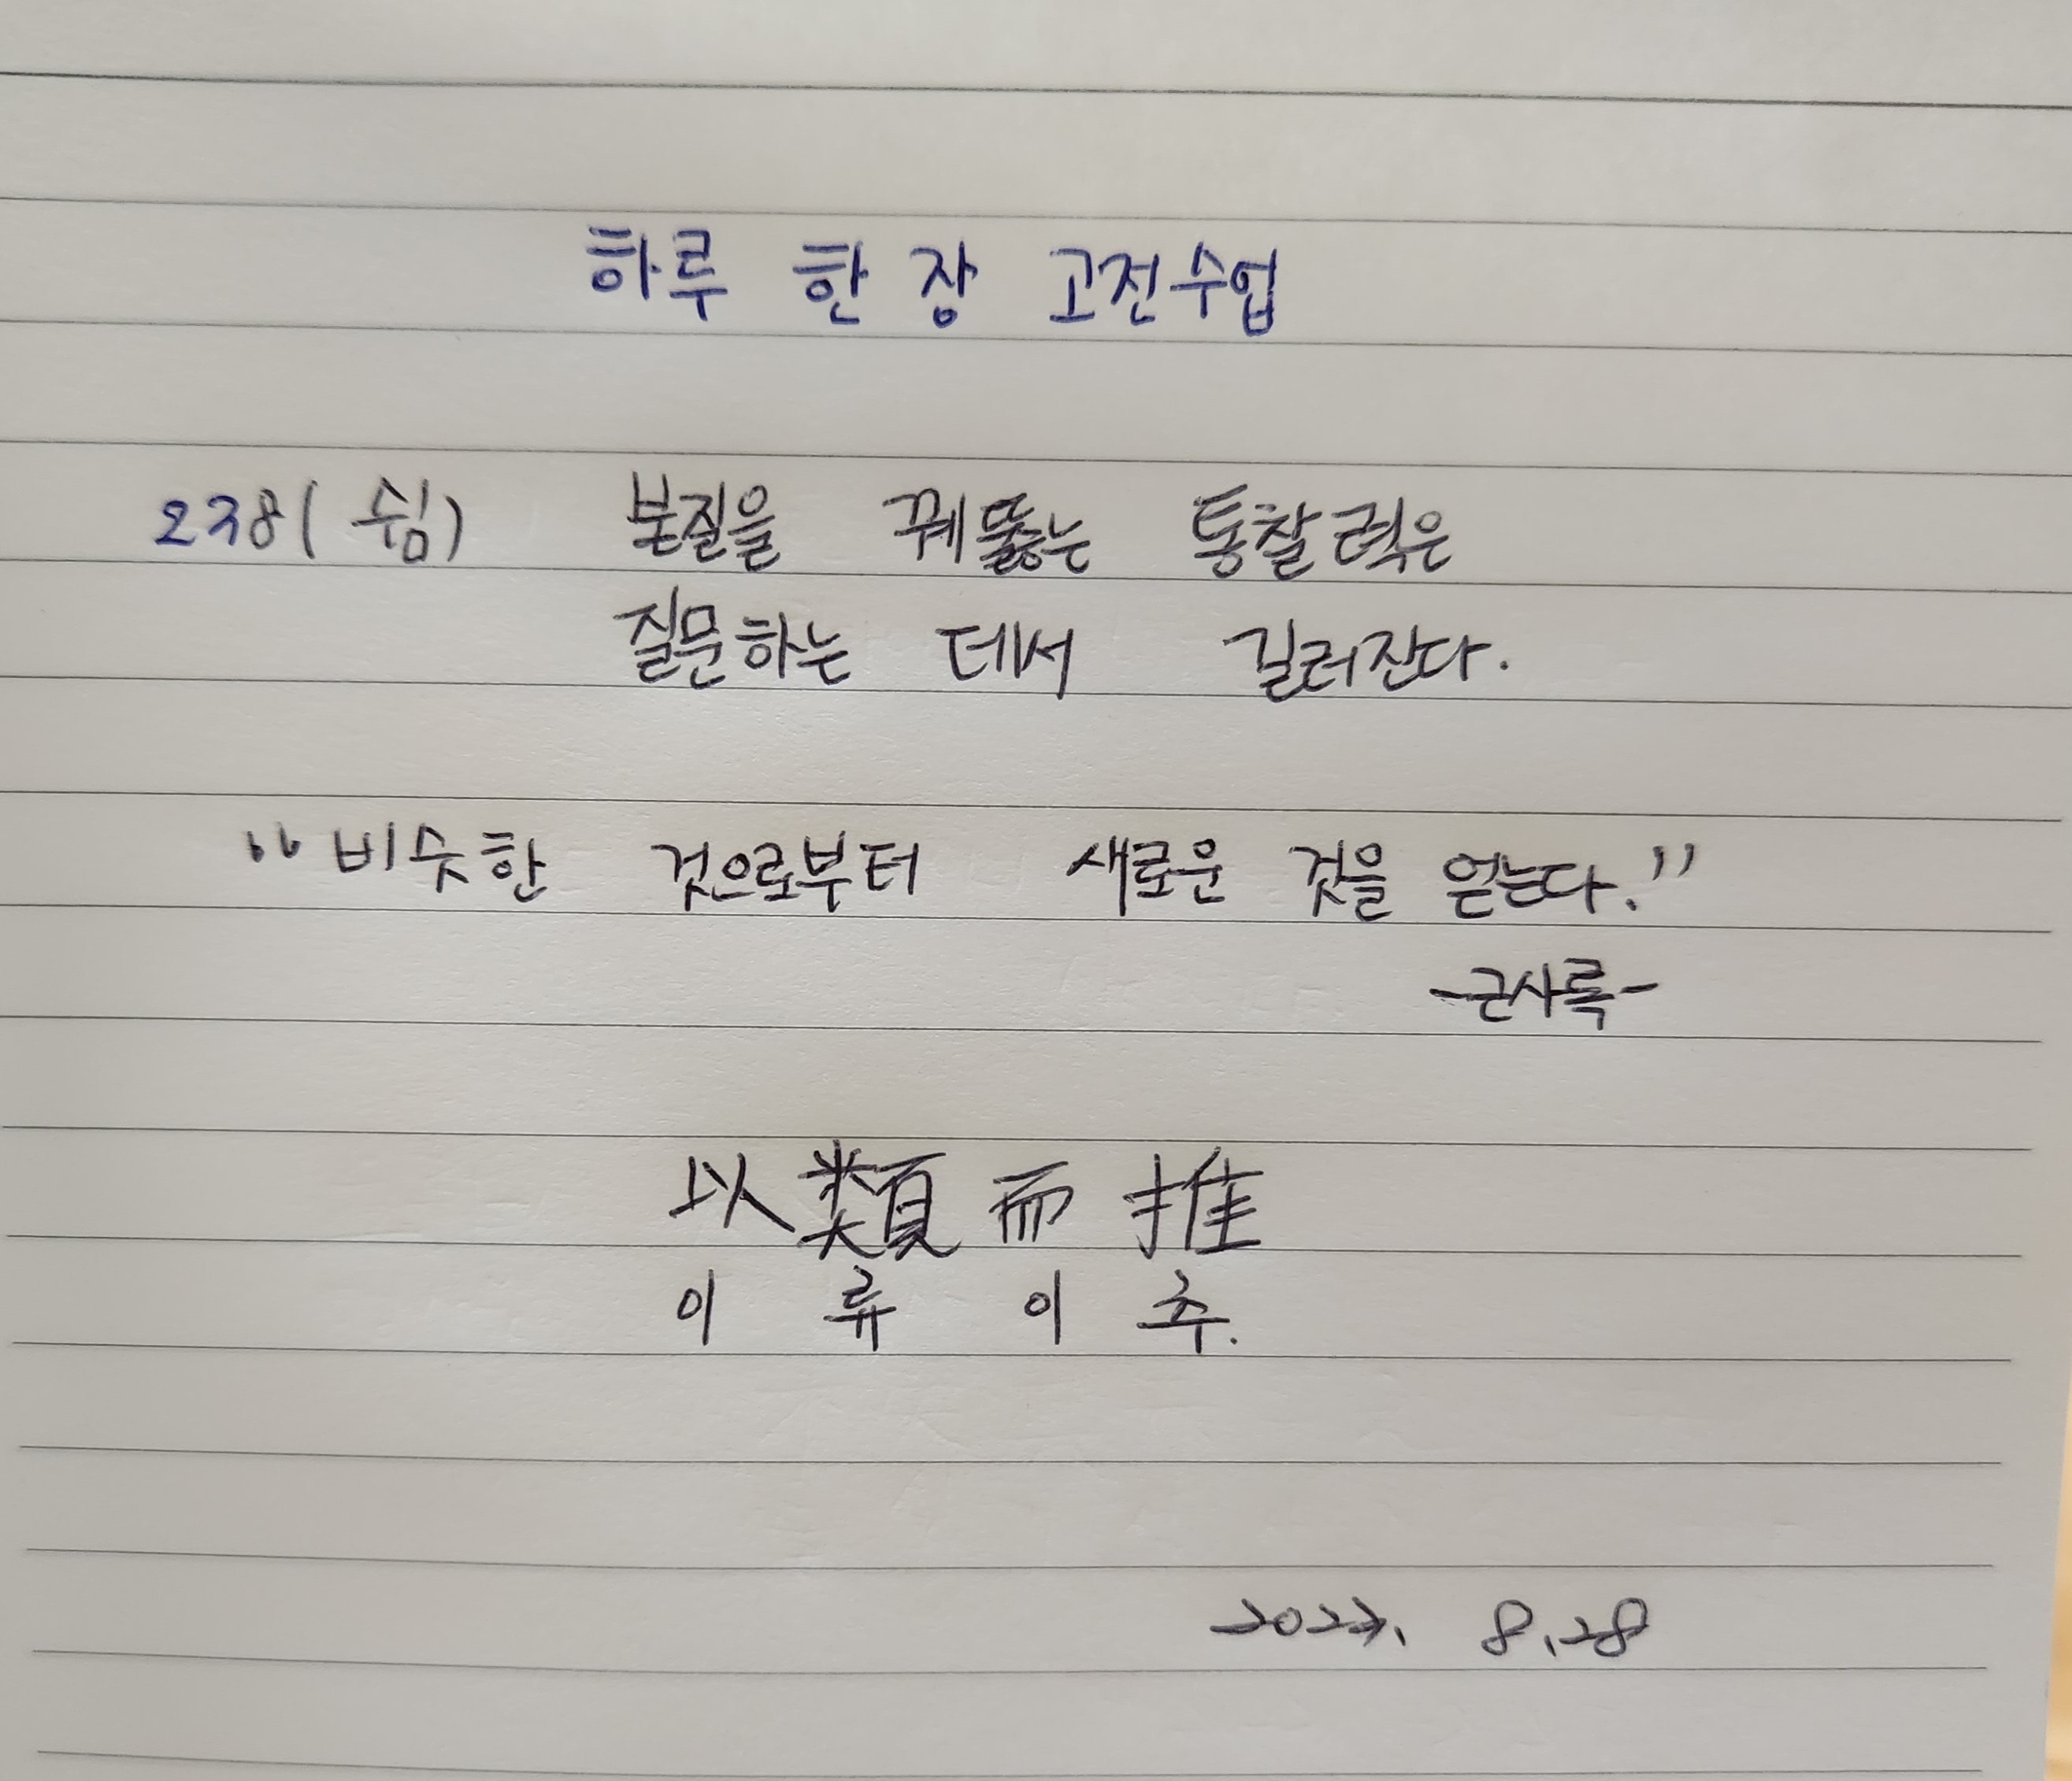 하루 한 장 고전수업
238 (쉼) 본질을 꿰뚫는 통찰력은
질문하는 데서 길러진다.
"비슷한 것으로부터 새로운 것을 얻는다."
-근사록-
以類而推
이 류 이 추.
8.28